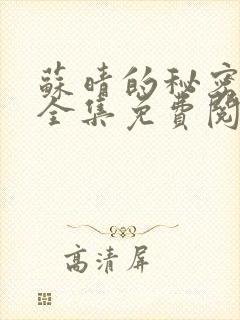 蘇晴的秘密
全集免費閱
高清屏